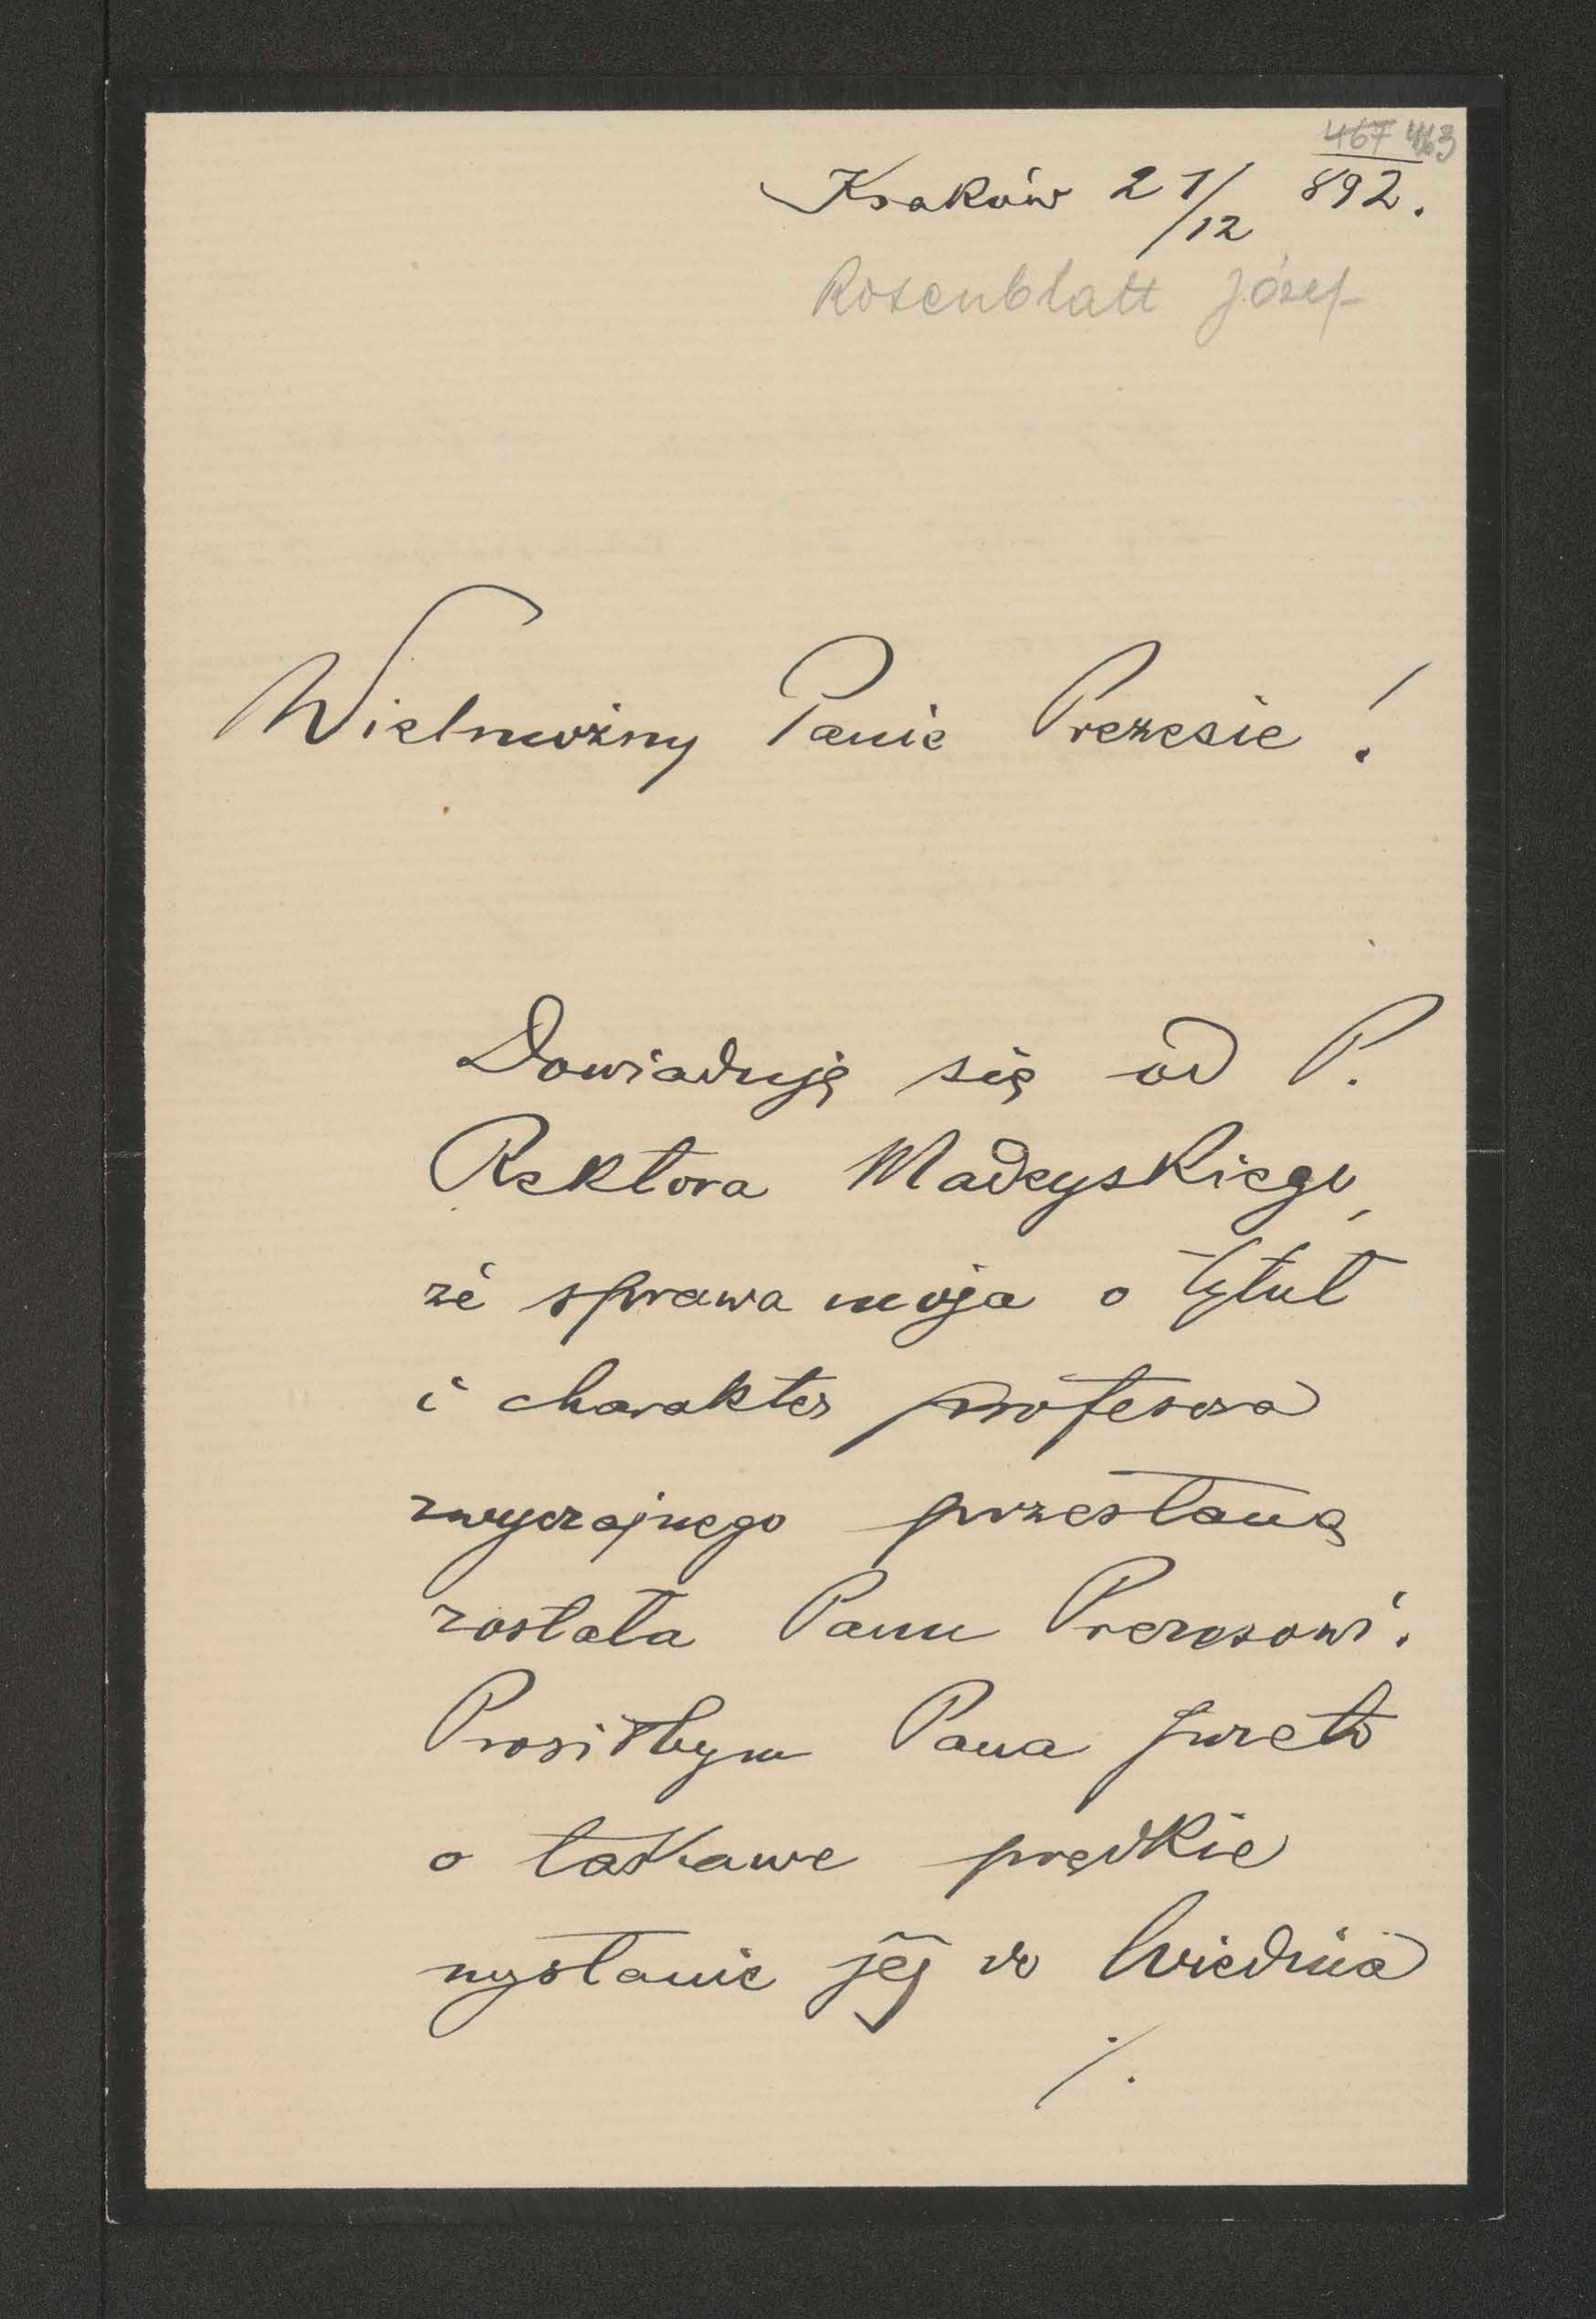 467 463
Kraków 21/12 892.
Rosenblatt Józef
Wielmożny Panie Prezesie!
Dowiaduję się od P.
Rektora Madeyskiego,
że sprawa moja o tytuł
i charakter profesora
zwyczajnego przesłaną
została Panu Prezesowi.
Prosiłbym Pana przeto
o łaskawe prędkie
wysłanie jéj do Wiednia
./.